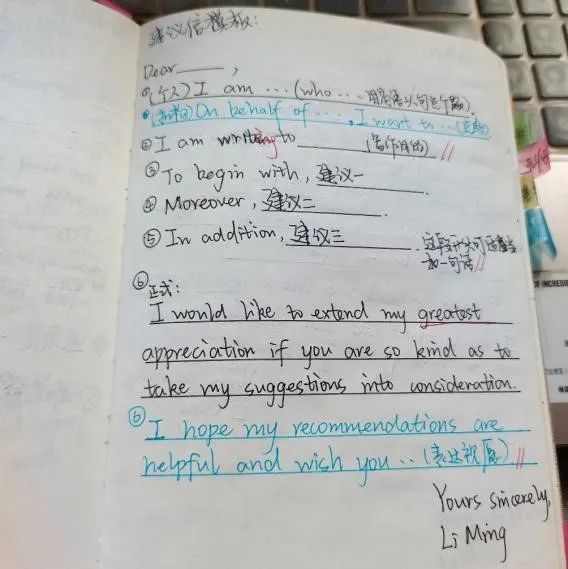 建议信模板:
Dear ____,
①(个人) I am …(who…用定语从句自介绍)
On behalf of …, I want to …
② I am writing to ____ (写作目的) //
③ To begin with, 建议一.
④ Moreover, 建议二.
⑤ In addition, 建议三.
加一句话//
⑥ 正式:
I would like to extend my greatest
appreciation if you are so kind as to
take my suggestions into consideration.
⑥ I hope my recommendations are
helpful and wish you .. (表达祝愿) //
Yours sincerely,
Li Ming
OF INCREDIB